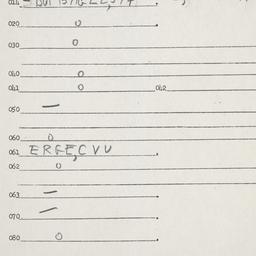 020 0
030 0
040 0
041 0 042
050 —
060 0
061 ERGE,CVU
062 0
063 —
070 —
080 0